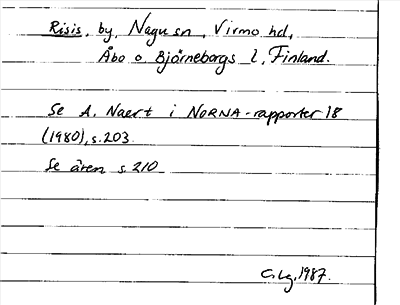 Risis, by, Nagu sn, Virmo hd,
Åbo o Björneborgs l, Finland.
Se A. Naert i NORNA-rapporter 18
(1980), s. 203.
Se även s. 210
C.Lg, 1987.